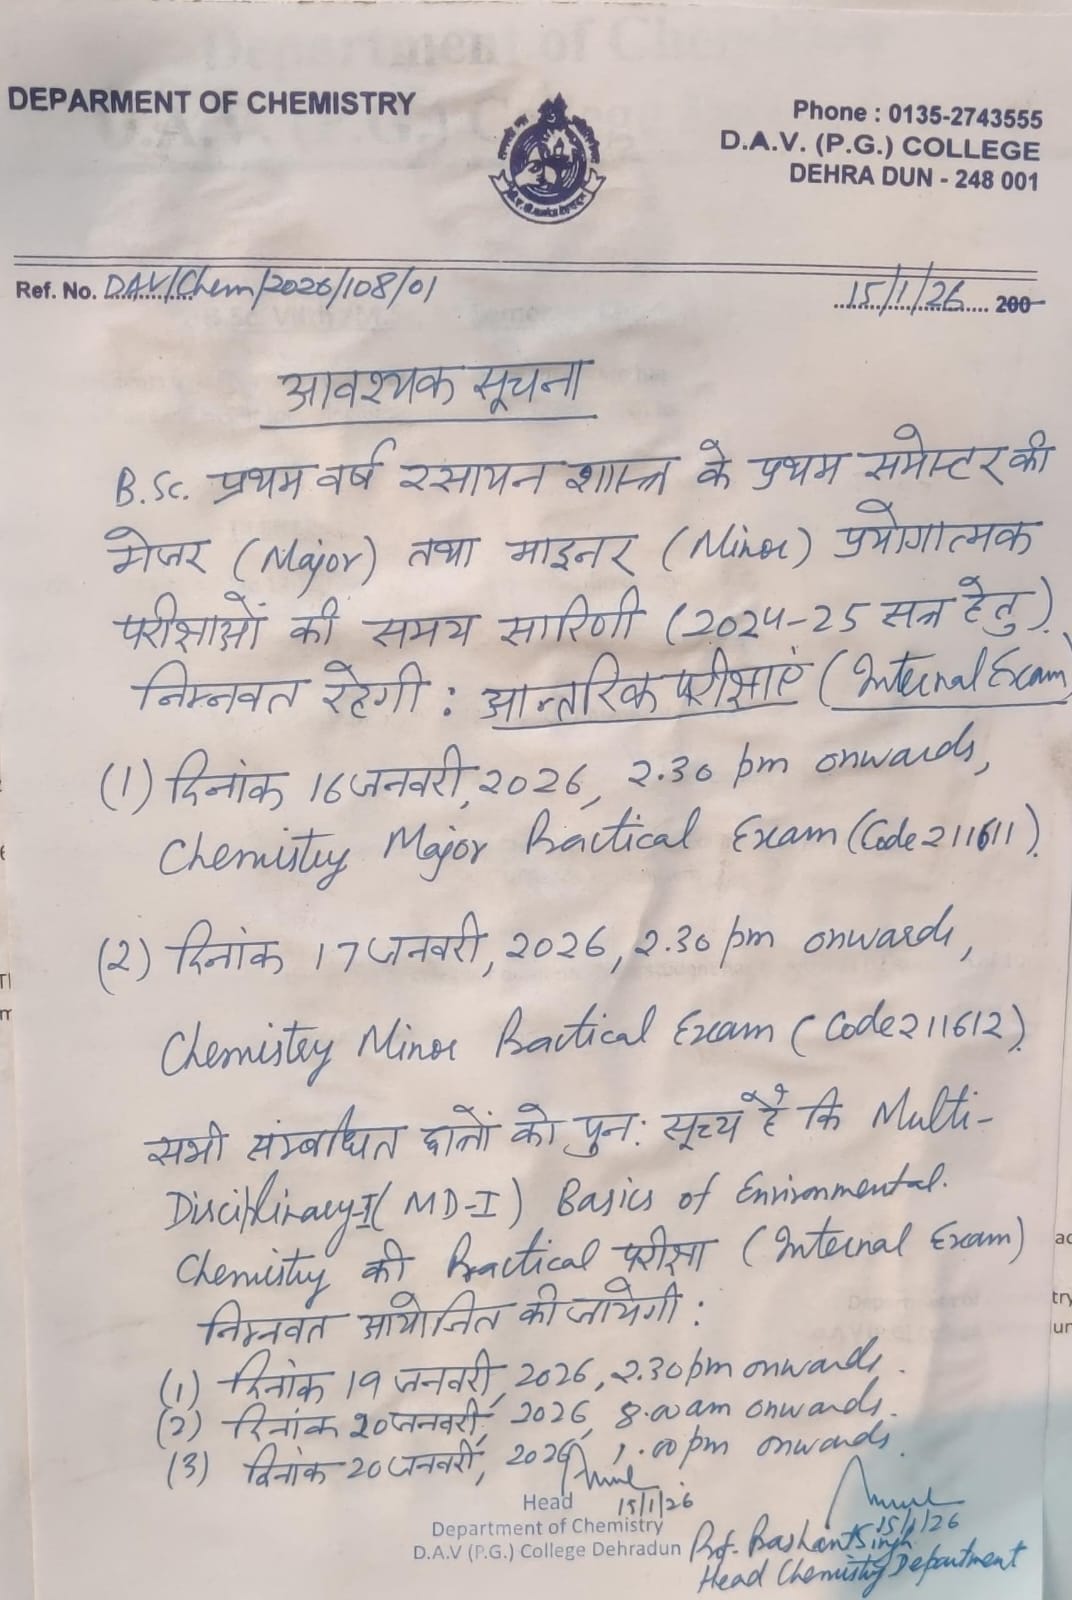 DEPARMENT OF CHEMISTRY
Phone : 0135-2743555
D.A.V. (P.G.) COLLEGE
DEHRA DUN - 248 001
Ref. No. DAV/Chem/2026/108/01
15/1/26 200
आवश्यक सूचना
B.Sc. प्रथम वर्ष रसायन शास्त्र के प्रथम समेस्टर की
मेजर (Major) तथा माइनर (Minor) प्रयोगात्मक
परीक्षाओं की समय सारिणी (2024-25 सत्र हेतु).
निम्नवत रहेगी : आन्तरिक परीक्षाएं (Internal Exam)
(1) दिनांक 16 जनवरी, 2026, 2.30 pm onwards,
Chemistry Major Practical Exam (Code 211611).
(2) दिनांक 17 जनवरी, 2026, 2.30 pm onwards,
Chemistry Minor Practical Exam (Code 211612).
सभी संम्बंधित छात्रों को पुन: सूच्य है कि Multi-
Disciplinary-I (MD-I) Basics of Environmental.
Chemistry की Practical परीक्षा (Internal Exam)
निम्नवत आयोजित की जायेगी :
(1) दिनांक 19 जनवरी, 2026, 2.30 pm onwards.
(2) दिनांक 20 जनवरी, 2026, 8.00 am onwards.
(3) दिनांक 20 जनवरी, 2026, 1.00 pm onwards.
Head 15/1/26
Department of Chemistry
D.A.V (P.G.) College Dehradun
15/1/26
Prof. Prashant Singh
Head Chemistry Department